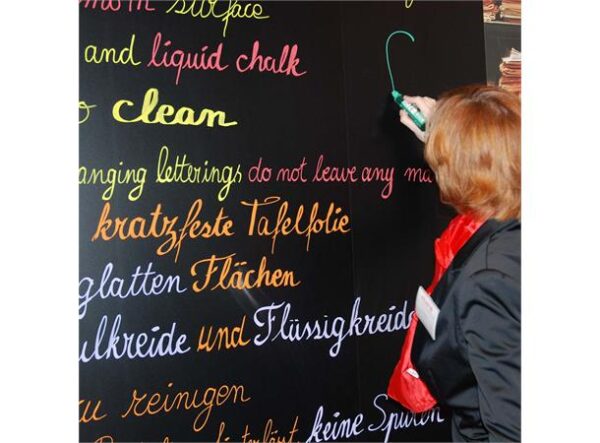 smooth surface
and liquid chalk
o clean
anging letterings do not leave any ma
kratzfeste Tafelfolie
glatten Flächen
ulkreide und Flüssigkreide
zu reinigen
hinterläßt keine Spuren